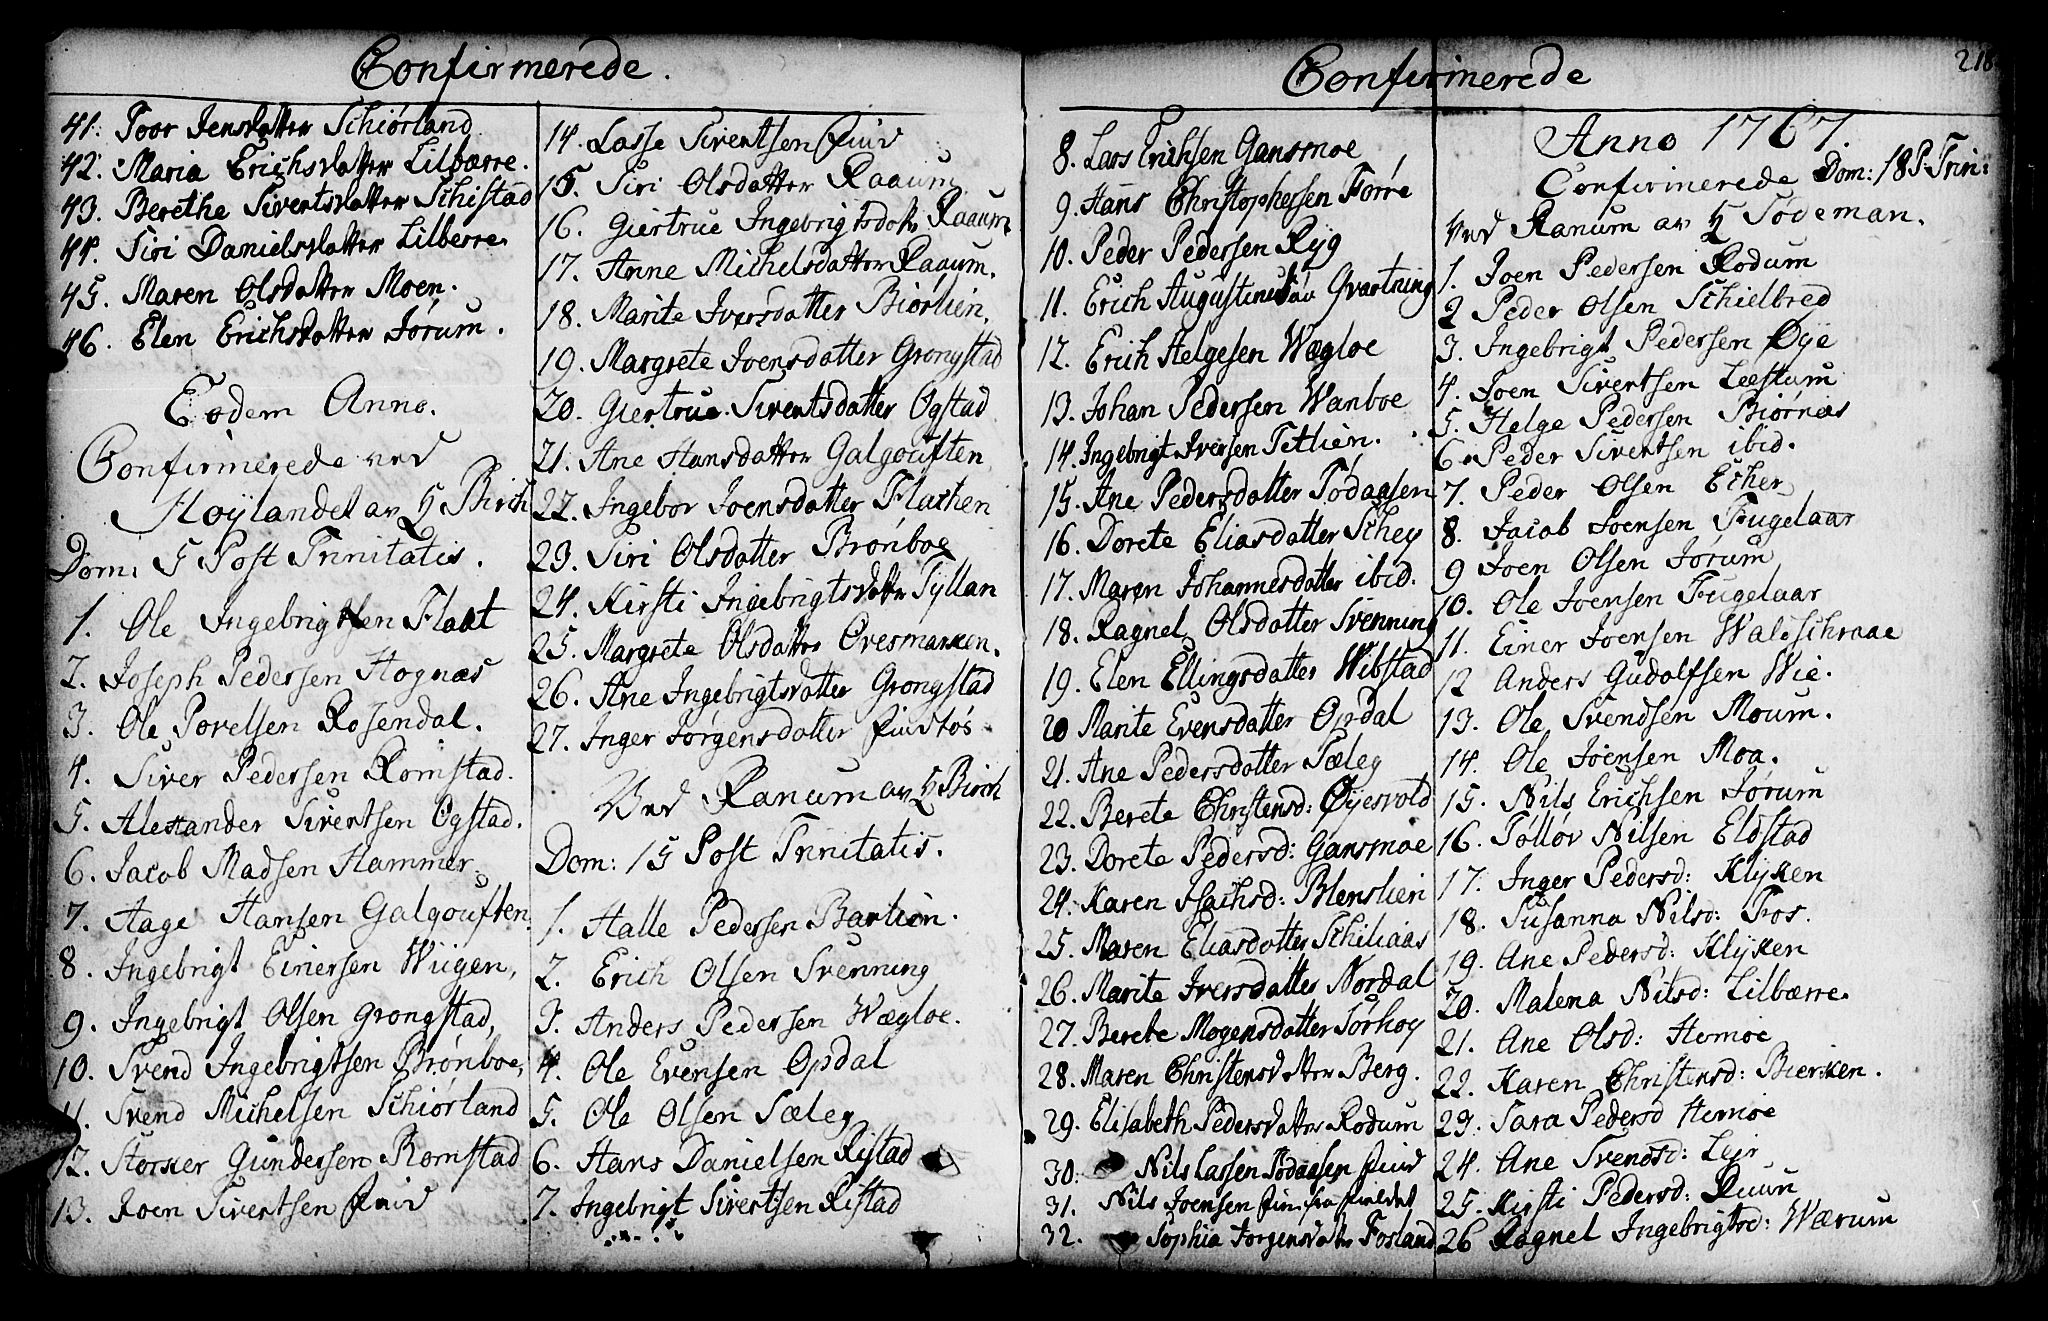 Confirmerede.
41. Toor Jensdatter Schiørland
42. Maria Erichsdatter Lilbærre.
43. Berethe Sivertsdatter Schistad
44. Siri Danielsdatter Lilberre
45. Maren Olsdatter Moen.
46. Elen Erichsdatter Jørum.
Eodem Anno.
Confirmerede ved
Høylandet av H Birch
Dom: 5 Post Trinitatis.
1. Ole Ingebrigtsen Flaat
2. Joseph Pedersen Hognæs
3. Ole Povelsen Rosendal.
4. Siver Pedersen Romstad.
5. Alexander Sivertsen Ogstad.
6. Jacob Madsen Hammer
7. Aage Hansen Galgouften
8. Ingebrigt Einersen Wiigen,
9. Ingebrigt Olsen Grongstad,
10. Svend Ingebrigtsen Brønboe,
11. Svend Michelsen Schiørland
12. Storker Gundersen Romstad
13. Joen Sivertsen fin
14. Lasse Sivertsen fin
15. Siri Olsdatter Raaum
16. Giertrue Ingebrigtsdatt Raaum
17. Anne Michelsdatter Raaum.
18. Marite Iversdatter Biørlien,
19. Margrete Joensdatter Grongstad
20. Giertrue Sivertsdatter Ogstad
21. Ane Hansdatter Galgouften
22. Ingebor Joensdatter Flachen
23. Siri Olsdatter Brønboe
24. Kirsti Ingebrigtsdattr Tyllan
25. Margrete Olsdatter Overmarken.
26. Ane Ingebrigtsdatter Grongstad
27. Inger Jørgensdatter
Ved Ranum av H Birch
Dom: 15 Post Trinitatis.
1. Halle Pedersen Barlien.
2. Erich Olsen Svenning
3. Anders Pedersen Wægloe.
4. Ole Evensen Opdal
5. Ole Olsen Sæleg
6. Hans Danielsen Ristad
7. Ingebrigt Sivertsen Ristad
Confirmerede
218
8. Lars Erichsen Gansmoe
9. Hans Christophersen Førre
10. Peder Pedersen Ryg
11. Erich Augustinus Gvartning
12. Erich Helgesen Wægloe
13. Johan Pedersen Wanboe
14. Ingebrigt Iversen Tetlien.
15. Ane Pedersdatter Tødaasen
16. Dorete Eliasdatter Schey
17. Maren Johannesdatter ibid.
18. Ragnel Olsdatter Svenning
19. Elen Ellingsdatter Wibstad
20 Marite Evensdatter Opdal
21. Ane Pedersdatter Sæleg
22. Berete Christensd: Øyesvold
23. Dorete Pedersd: Gansmoe
24. Karen Isachsd: Blenslien
25. Maren Eliasdatter Schiliaas
26. Marite Iversdatter Nordal
27. Berete Mogensdatter Tørhoy
28. Maren Christensdatter Berg.
29. Elisabeth Pedersdatter Rodum
30. Nils Lassen Tødaasen fin
31. Nils Joensen fin fra fieldet
32. Sophia Jørgensdatr Fosland
Anno 1767.
Confirmerede Dom: 18 P. Trin:
Ved Ranum av H Sødeman.
1. Joen Pedersen Rodum
2 Peder Olsen Schielbred
3. Ingebrigt Pedersen Øye
4. Joen Sivertsen Leestum
5. Helge Pedersen Biørnæs
6. Peder Sivertsen ibid.
7. Peder Olsen Echer
8. Jacob Joensen Fugelaar
9 Joen Olsen Jørum
10. Ole Joensen Fugelaar
11. Einer Joensen Waleschraae
12 Anders Gudolfsen Wie.
13. Ole Svendsen Moum.
14. Ole Joensen Moa.
15. Nils Erichsen Jørum
16. Tølløv Nilsen Eldstad
17. Inger Pedersd: Klyken
18. Susanna Nilsd: Fos.
19. Ane Pedersd: Klyken
20. Malena Nilsd: Lilbærre.
21. Ane Olsd: Hemoe
22. Karen Christensd: Bierken.
23. Sara Pedersd Hemoe
24. Ane Svendsd: Leir
25. Kirsti Pedersd: Ruun
26 Ragnel Ingebrigtsd: Wærum